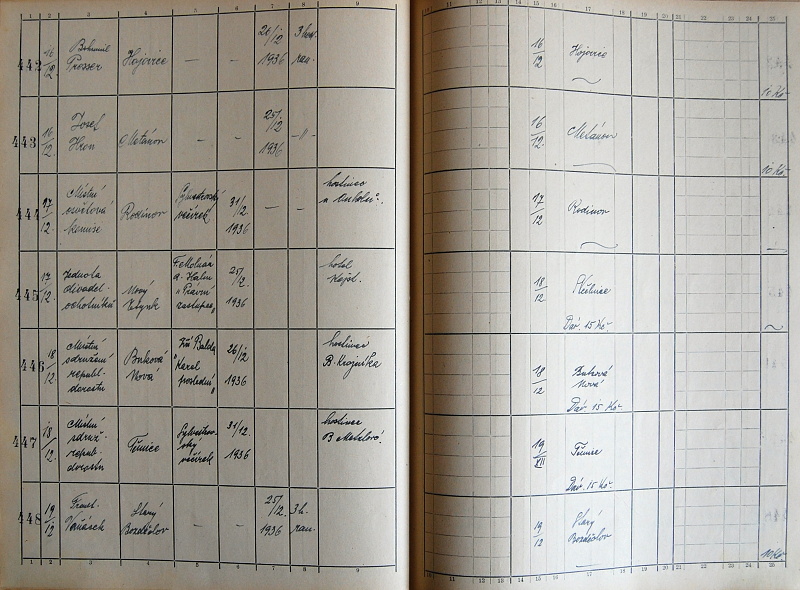 1 2 3 4 5 6 7 8 9
442 16/12 Bohumil Prosser Hojovice — — 26/12 1936 3 h. ran.
443 16/12. Josef Hron Metánov — — 25/12. 1936 —〃—
444 17/12. Místní osvětová komise Rodinov večírek 31/12. 1936 — — hostinec
445 17/12. Jednota divadel. ochotníků Nový "Právní zástupce" 25/12. 1936 hotel
446 18/12. Místní sdružení republ. dorostu Buková Nová "Karel poslední" 26/12 1936 hostinec B. Krajníka
447 18/12. Místní sdruž. republ. dorostu Těmice Sylvestrovský večírek 31/12. 1936 hostinec
448 19/12 Frant. Vaňásek Starý Bozděchov — — 25/12. 1936 3 h. ran.
1 2 3 4 5 6 7 8 9
11 12 13 14 15 16 17 18 19 20 21 22 23 24 25
16/12 Hojovice 10 Kč
16/12. Metánov 10 Kč.
17/12 Rodinov
18/12
Dáv. 15 Kč.
18/12 Buková Nová
Dáv. 15 Kč.
19/XII Těmice
Dáv. 15 Kč.
19/12 Starý Bozděchov 10 Kč
11 12 13 14 15 16 17 18 19 20 21 22 23 24 25